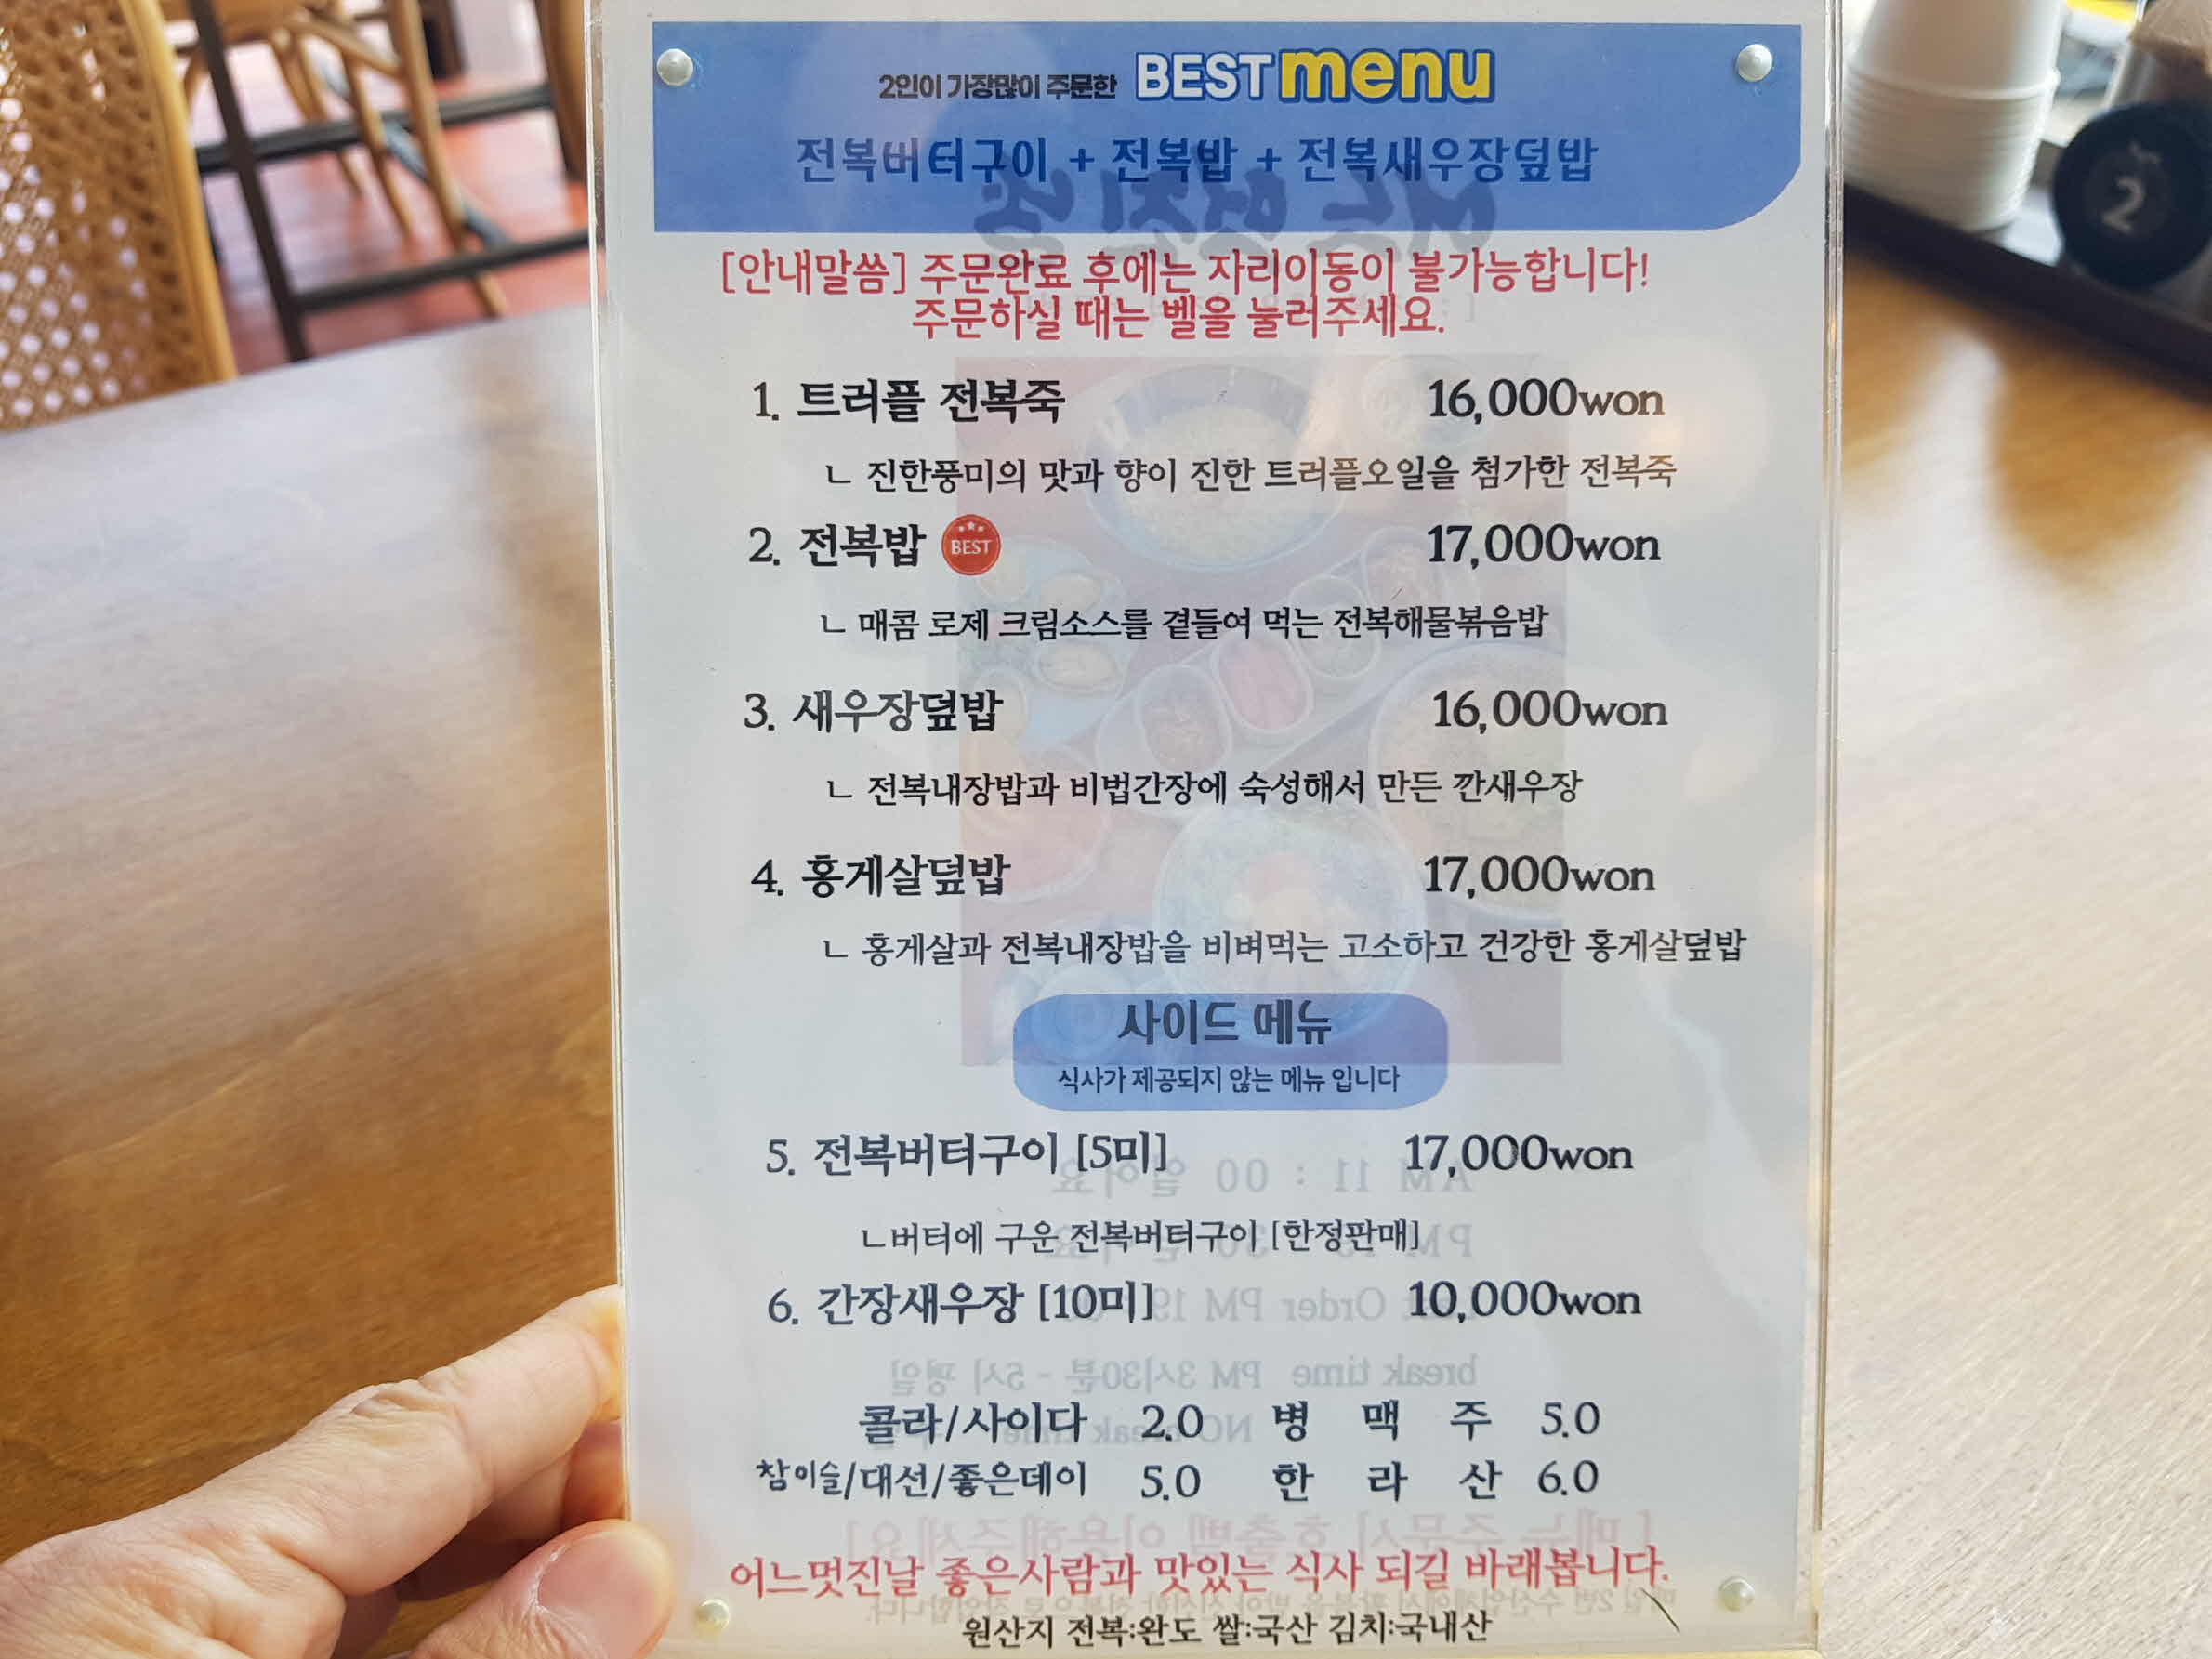 2인이 가장많이 주문한 BEST menu
전복버터구이 + 전복밥 + 전복새우장덮밥
[안내말씀] 주문완료 후에는 자리이동이 불가능합니다!
주문하실 때는 벨을 눌러주세요.
1. 트러플 전복죽 16,000won
ㄴ 진한풍미의 맛과 향이 진한 트러플오일을 첨가한 전복죽
2. 전복밥 BEST 17,000won
ㄴ 매콤 로제 크림소스를 곁들여 먹는 전복해물볶음밥
3. 새우장덮밥 16,000won
ㄴ 전복내장밥과 비법간장에 숙성해서 만든 깐새우장
4. 홍게살덮밥 17,000won
ㄴ 홍게살과 전복내장밥을 비벼먹는 고소하고 건강한 홍게살덮밥
사이드 메뉴
식사가 제공되지 않는 메뉴 입니다
5. 전복버터구이 [5미] 17,000won
ㄴ버터에 구운 전복버터구이 [한정판매]
6. 간장새우장 [10미] 10,000won
콜라/사이다 2.0 병 맥 주 5.0
참이슬/대선/좋은데이 5.0 한 라 산 6.0
어느멋진날 좋은사람과 맛있는 식사 되길 바래봅니다.
원산지 전복:완도 쌀:국산 김치:국내산
2